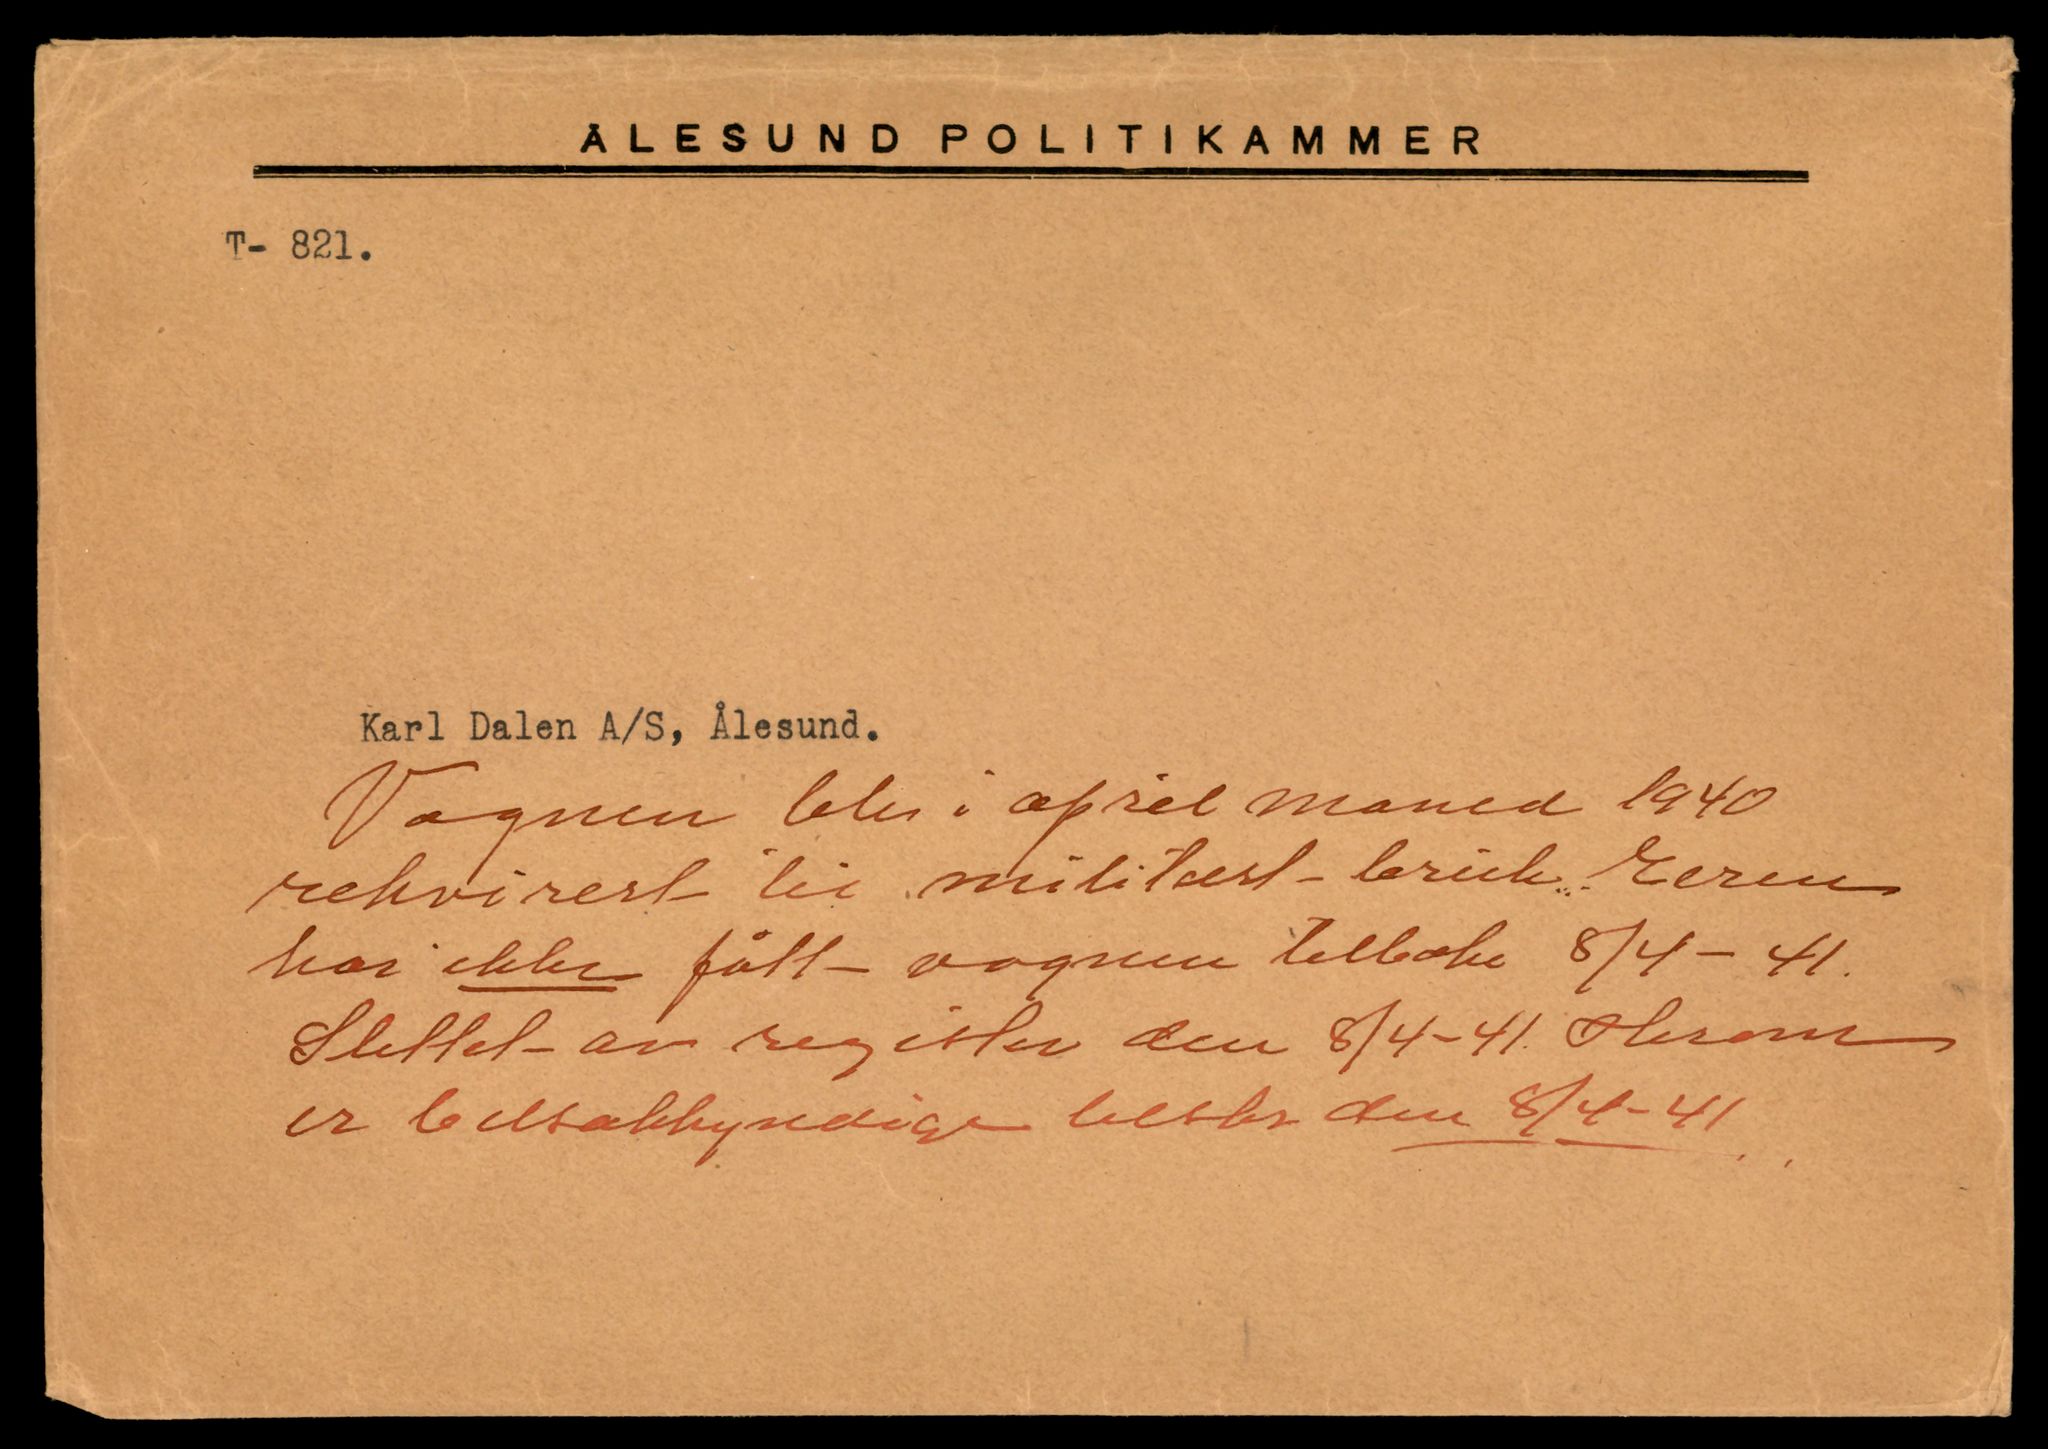 ÅLESUND POLITIKAMMER
T- 821.
Karl Dalen A/S, Ålesund.
Vagnen blev i april maned 1940
rekvirert til militært bruk. Eeren
har ikke fått vagnen tilbake 8/4-41.
Slettet av register den 8/4-41. Herom
er bilsakkyndige tilskr. den 8/4-41